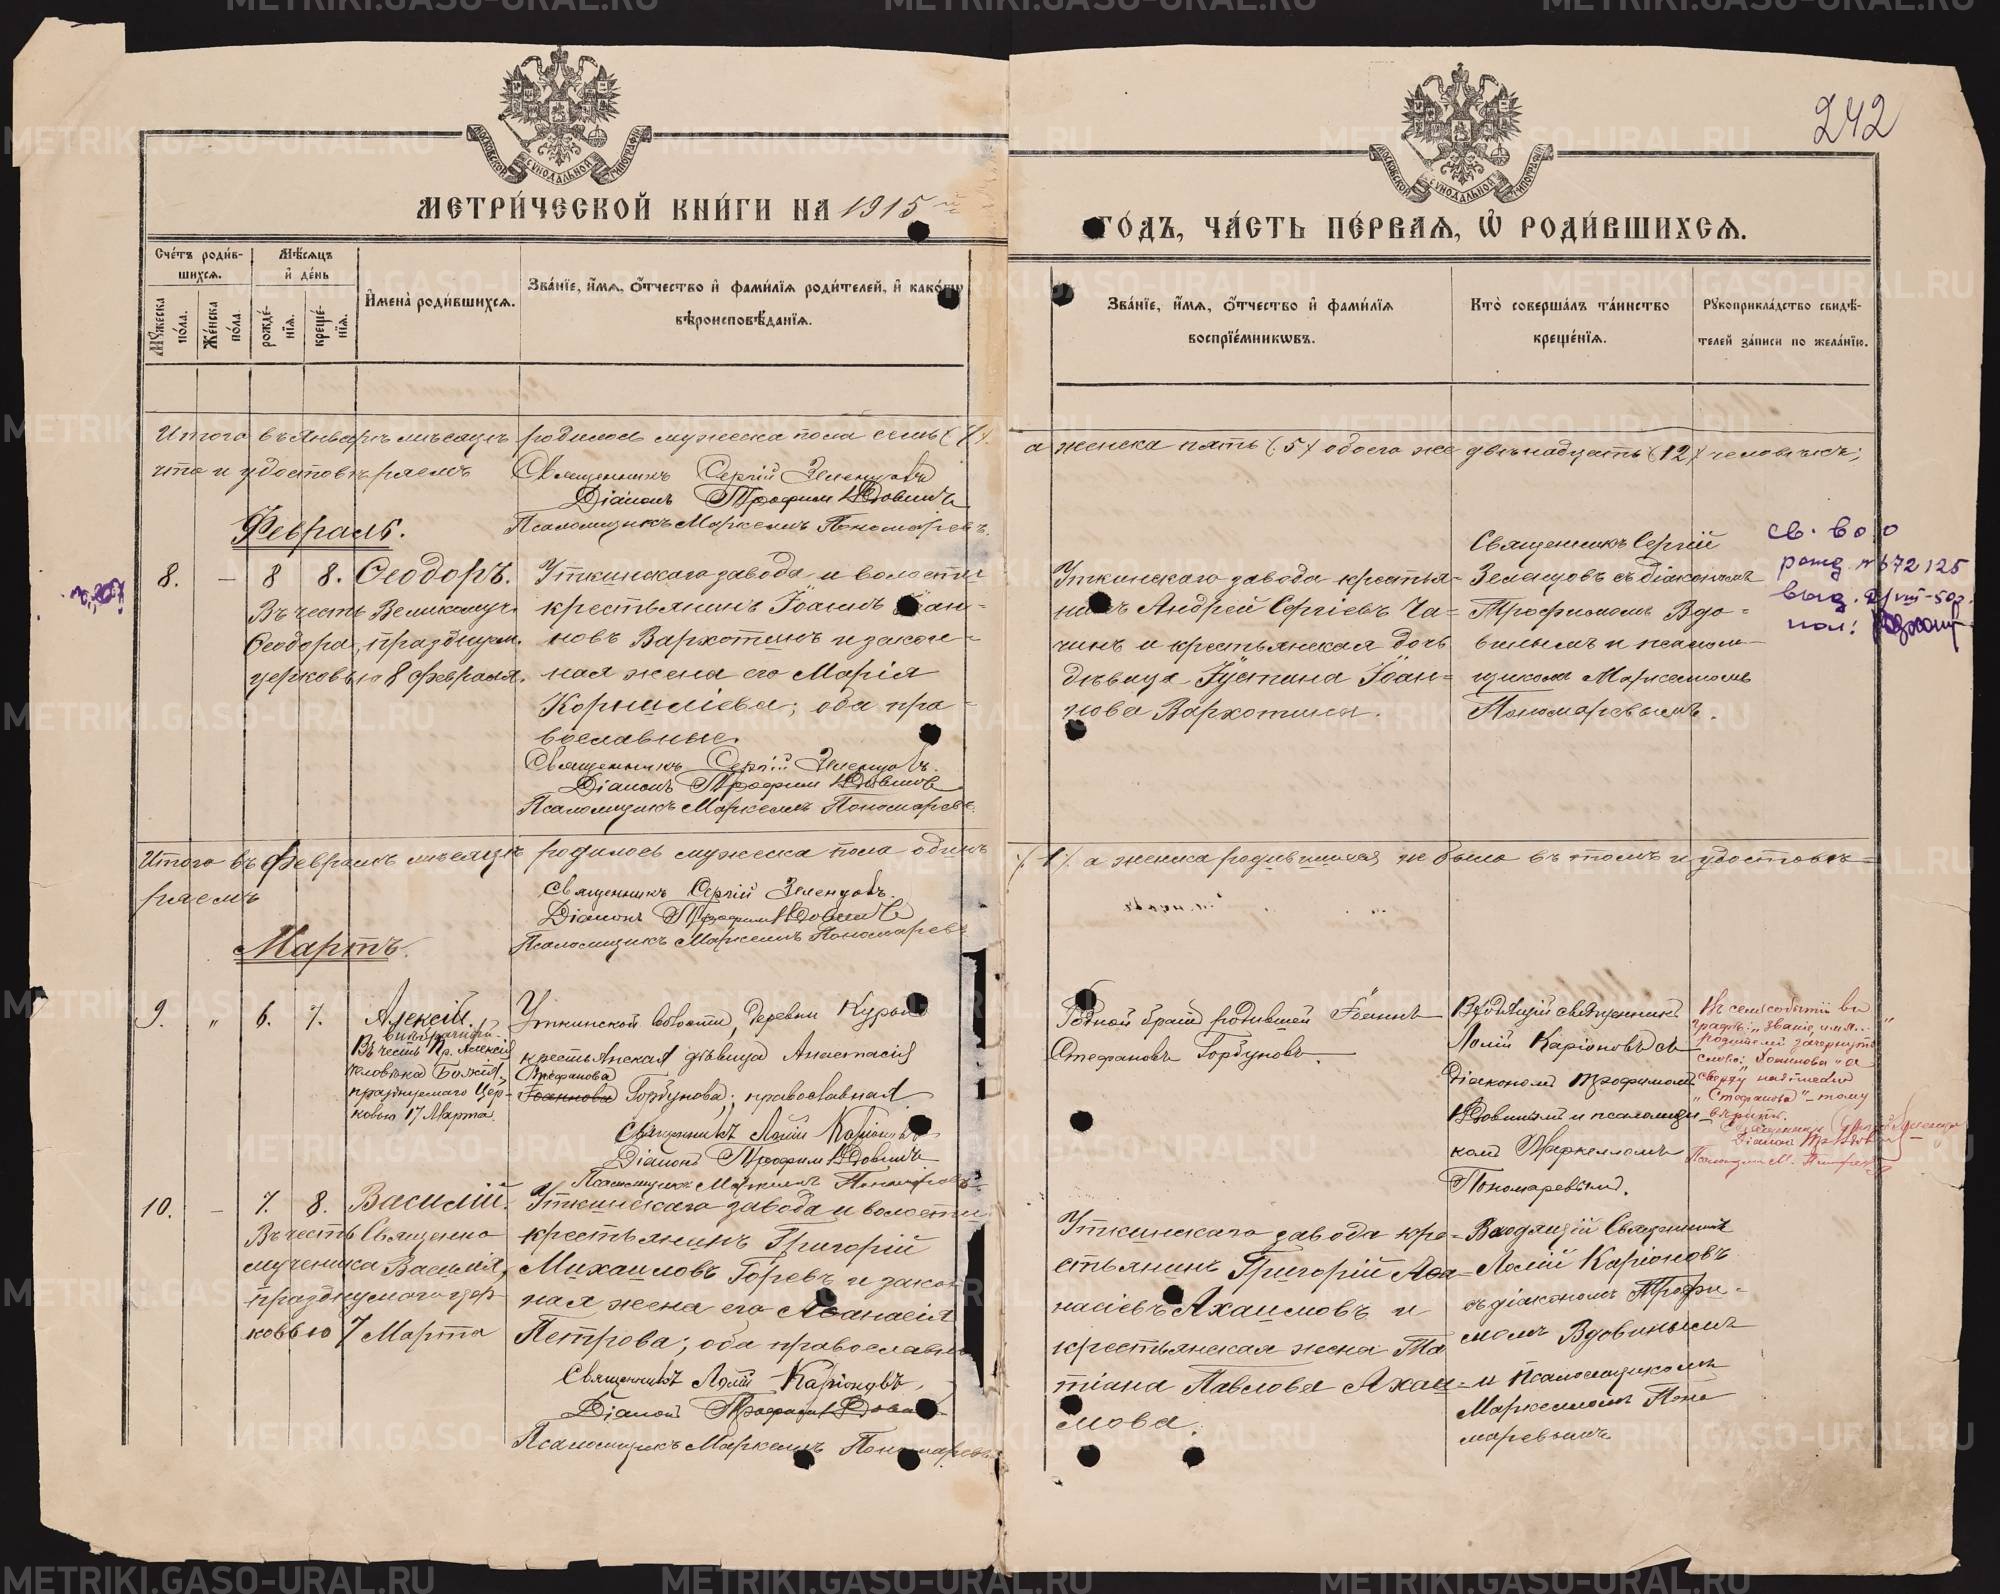 242
МОСКОВСКОЙ СѴНОДАЛЬНОЙ ТИПОГРАФІИ
МОСКОВСКОЙ СѴНОДАЛЬНОЙ ТИПОГРАФІИ
МЕТРИ́ЧЕСКОЙ КНИ́ГИ НА 1915 й
ГО́ДЪ, ЧА́СТЬ ПЕ́РВАЯ, Ѡ РОДИ́ВШИХСЯ.
Сче́тъ роди́в-
шихся.
Мꙋ́жеска по́ла.
Же́нска по́ла.
Мѣ́сяцъ
и҆ де́нь
рожде́-нїя.
креще́-нїя.
И҆мена̀ роди́вшихся.
Зва́нїе, и҆́мя, о҆́тчество и҆ фами́лїя роди́телей, и҆ како́гѡ
вѣроисповѣ́данїя.
Зва́нїе, и҆́мя, о҆́тчество и҆ фами́лїя
воспрїе́мникѡвъ.
Кто̀ соверша́лъ та́инство
креще́нїя.
Рꙋкоприкла́дство свидѣ́-
телей за́писи по жела́нїю.
Итого въ Январѣ мѣсяцѣ родилось мужеска пола семь (7)
а женска пять (5) обоего же двѣнадцать (12) человѣкъ;
что и удостовѣряемъ
Священникъ Сергій Зеленцовъ
Діаконъ Трофим Вдовинъ
Псаломщикъ Маркеллъ Пономаревъ.
Февраль.
8. – 8 8. Ѳеодоръ.
Въ честь Великомуч.
Ѳеодора, празднуем.
церковью 8 февраля.
Уткинскаго завода и волости
крестьянинъ Іоаннъ Іоан-
новъ Вархотинъ и закон-
ная жена его Марія
Корниліева; оба пра-
вославные.
Священникъ Сергій Зеленцовъ.
Діаконъ Трофим Вдовинъ
Псаломщикъ Маркеллъ Пономаревъ.
Уткинскаго завода крестья-
нинъ Андрей Сергіевъ Ча-
чинъ и крестьянская дочь
дѣвица Іустина Іоан-
нова Вархотина.
Священникъ Сергій
Зеленцовъ съ діакономъ
Трофимомъ Вдо-
винымъ и псалом-
щикомъ Маркелломъ
Пономаревымъ.
св. во о
рожд. № 672125
выд. VIII-50г.
Итого въ Февралѣ мѣсяцѣ родилось мужеска пола одинъ
(1) а женска родившихся не было въ томъ и удостовѣ-
ряемъ
Священникъ Сергій Зеленцовъ.
Діаконъ Трофим Вдовинъ
Псаломщикъ Маркеллъ Пономаревъ
Мартъ.
9. " 6. 7. Алексій.
Въ честь Пр. Алексія
человѣка Божія,
празднуемаго Цер-
ковью 17 Марта.
Уткинской волости, деревни Курьи
крестьянская дѣвица Анастасія
Стефанова
Іоаннова Горбунова; православная
Священникъ Лолій Каріоновъ
Діаконъ Трофим Вдовинъ
Псаломщикъ Маркеллъ Пономаревъ
Родной братъ родившей Іоаннъ
Стефановъ Горбуновъ.
Входящій священникъ
Лолій Каріоновъ съ
діакономъ Трофимомъ
Вдовинымъ и псаломщи-
комъ Маркелломъ
Пономаревымъ.
Въ сей событіи въ
графѣ: „Званіе, имя..."
родителей зачеркнуто
слово: „Іоаннова" а
сверху написано
„Стефанова" – тому
вѣрить.
Священникъ Сергій Зеленцовъ
Діаконъ Тр. Вдовинъ
10. – 7. 8. Василій.
Въ честь Священно
мученика Василія,
празднуемаго цер-
ковью 7 Марта
Уткинскаго завода и волости
крестьянинъ Григорій
Михаиловъ Горевъ и закон
ная жена его Аѳанасія
Петрова; оба православные
Священникъ Лолій Каріоновъ,
Діаконъ Трофим Вдовинъ
Псаломщикъ Маркеллъ Пономаревъ
Уткинскаго завода кре-
стьянинъ Григорій Аѳа-
насіевъ Ахаимовъ и
крестьянская жена Та
тіана Павлова Ахаи-
мова.
Входящій Священникъ
Лолій Каріоновъ
съ діакономъ Трофи-
момъ Вдовинымъ
и Псаломщикомъ
Маркелломъ Поно
маревымъ
METRIKI.GASO-URAL.RU